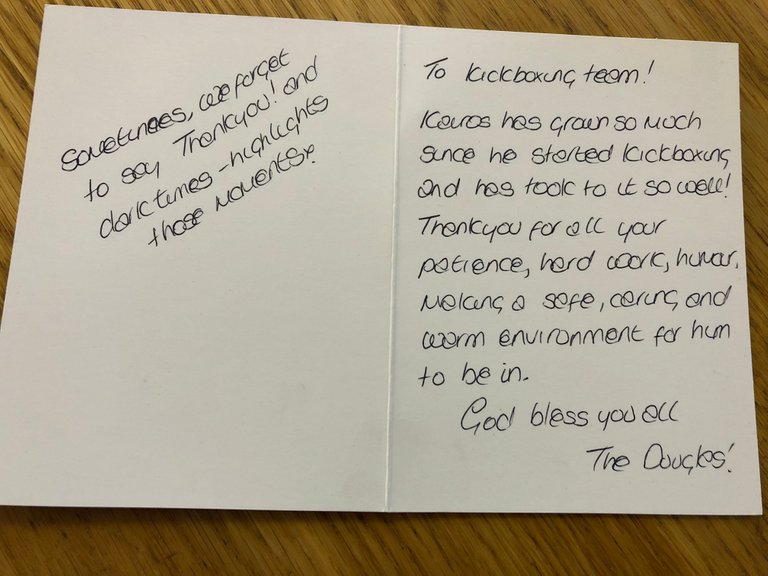 Sometimes, we forget
to say Thankyou! and
dark times - highlights
those moments x
To Kickboxing team!
Keiros has grown so much
since he started kickboxing
and has took to it so well!
Thankyou for all your
patience, hard work, humour,
Making a safe, caring and
warm environment for him
to be in.
God bless you all
The Douglas!